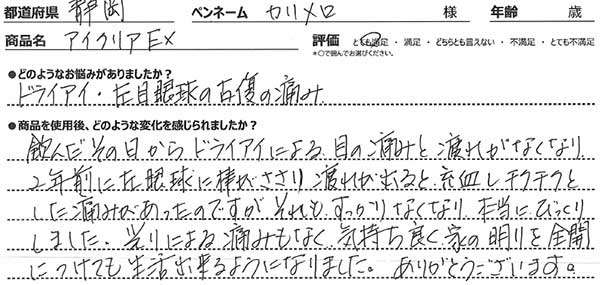 都道府県 静岡 ペンネーム カリメロ 様 年齢 歳
商品名 アイクリアEX 評価 とても満足・満足・どちらとも言えない・不満足・とても不満足
*○で囲んでお選びください。
●どのようなお悩みがありましたか?
ドライアイ・左目眼球の古傷の痛み
●商品を使用後、どのような変化を感じられましたか?
飲んだその日からドライアイによる目の痛みと疲れがなくなり
2年前に左眼球に棒がささり疲れが出ると充血しチクチクと
した痛みがあったのですがそれもすっかりなくなり本当にびっくり
しました。光りによる痛みもなく気持ち良く家の明りを全開
につけても生活出来るようになりました。ありがとうございます。